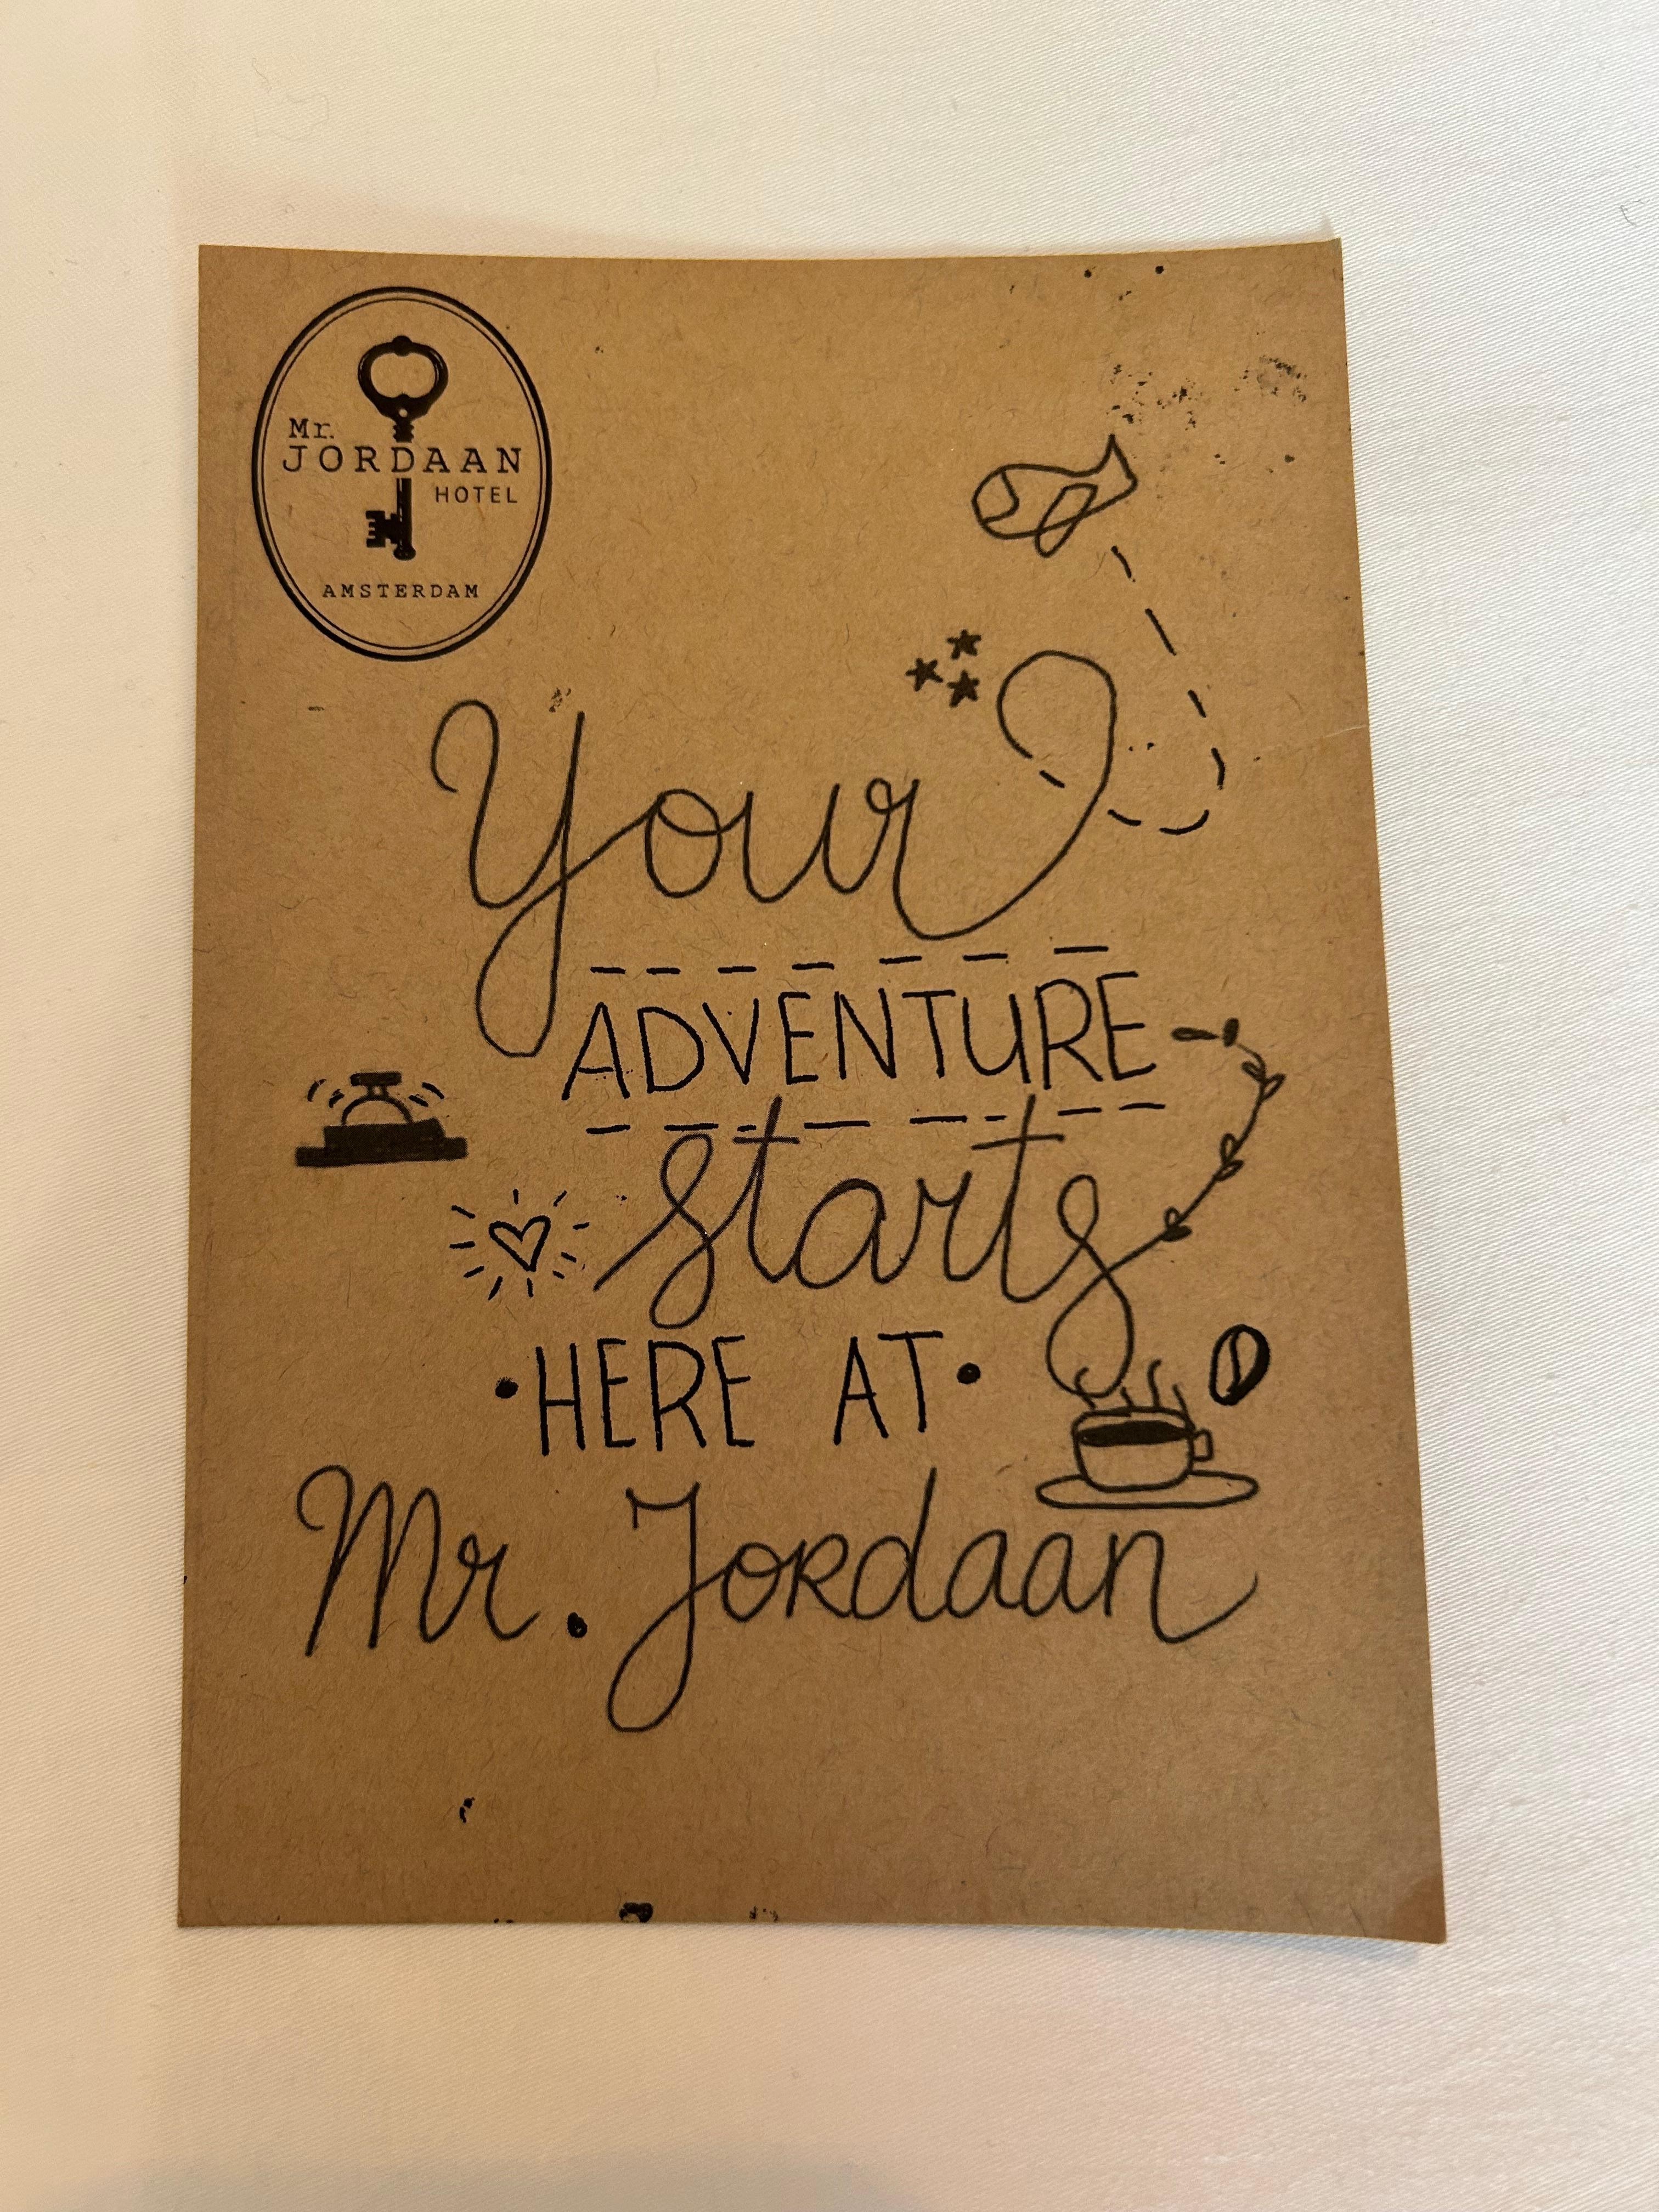 Mr.
JORDAAN
HOTEL
AMSTERDAM
Your
ADVENTURE
starts
HERE AT
Mr. Jordaan